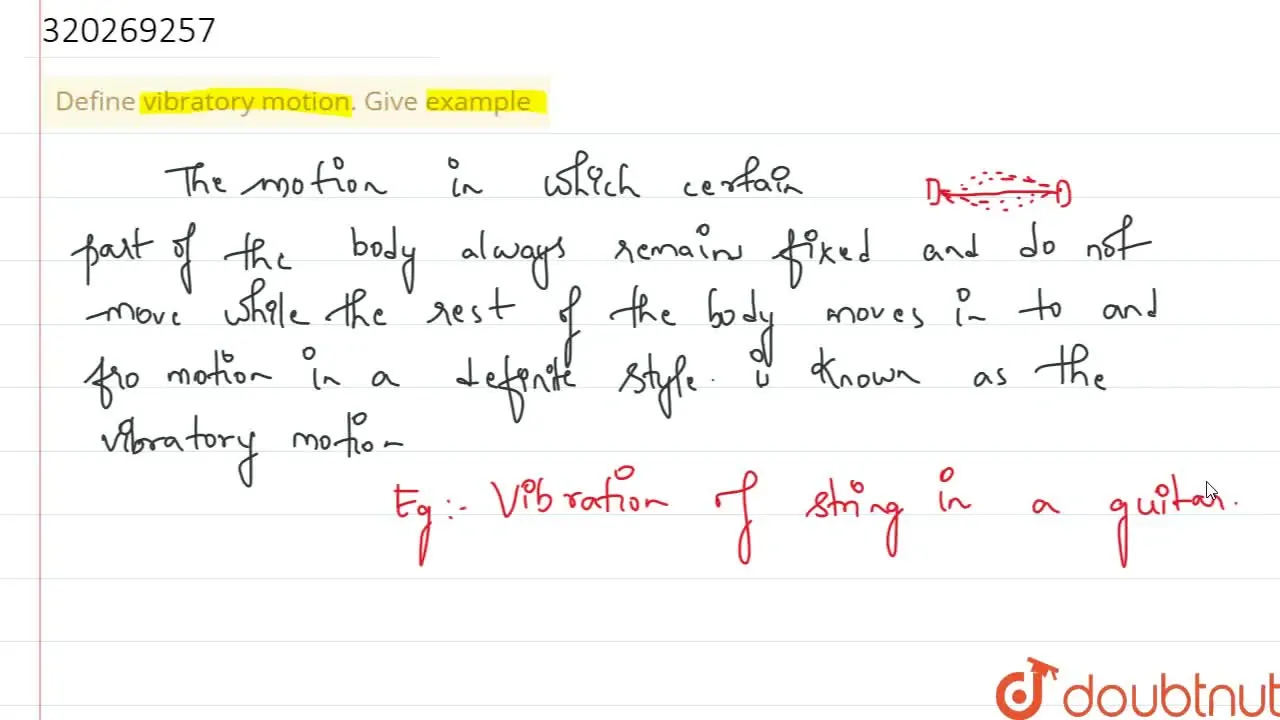 320269257
Define vibratory motion. Give example
The motion in which certain
part of the body always remains fixed and do not
move while the rest of the body moves in to and
fro motion in a definite style. is known as the
vibratory motion
Eg:- Vibration of string in a guitar.
doubtnut